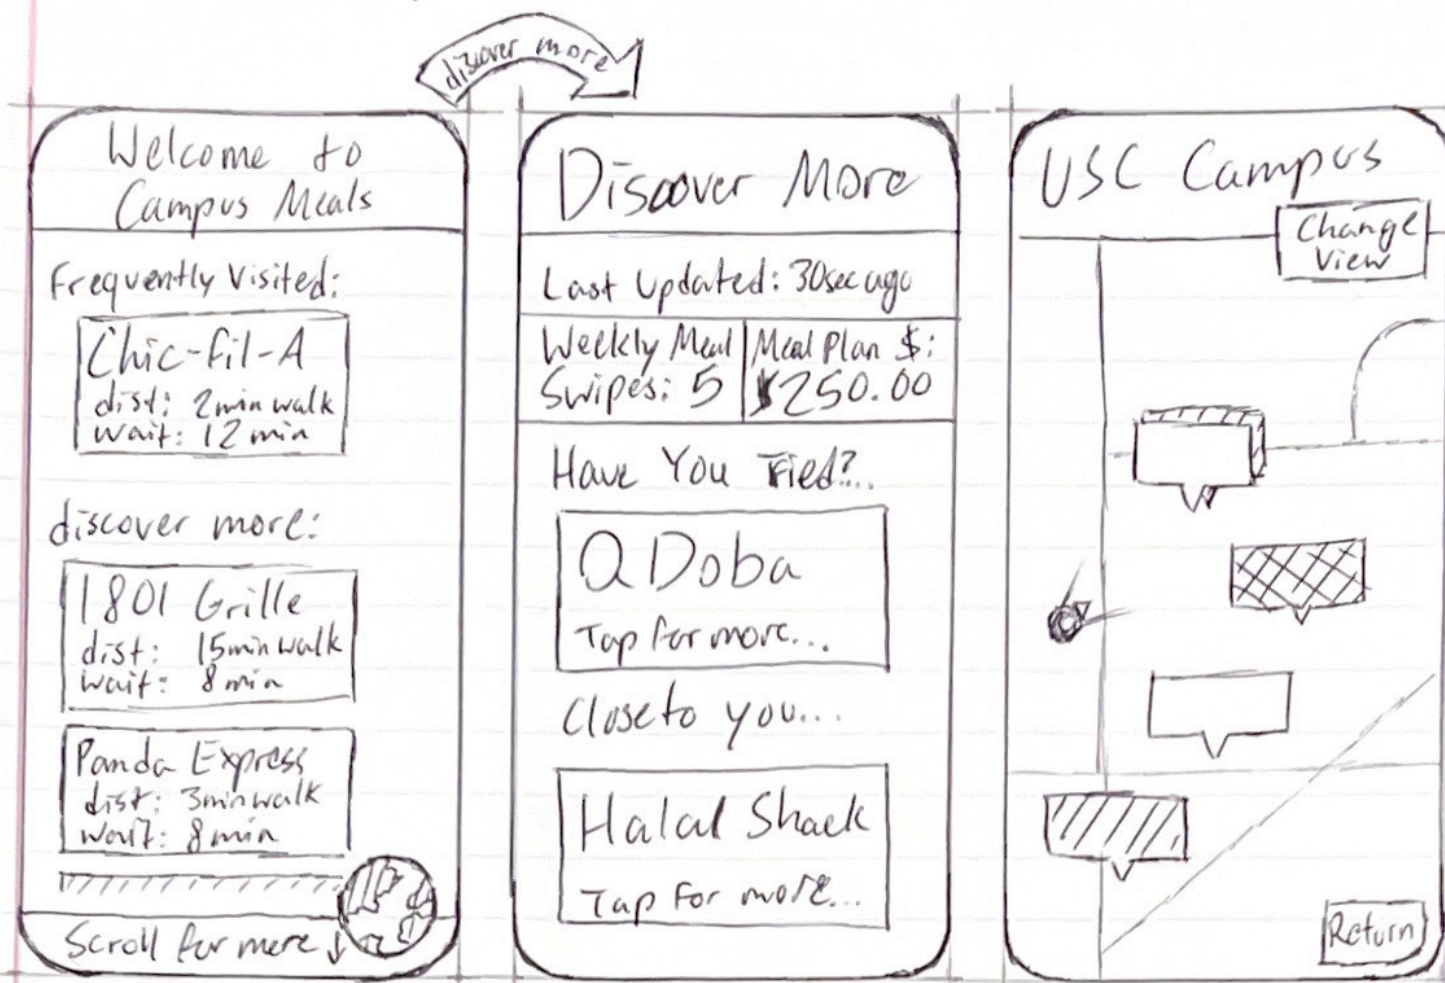 discover more
Welcome to
Campus Meals
Frequently Visited:
Chic-fil-A
dist: 2min walk
wait: 12 min
discover more:
1801 Grille
dist: 15min walk
wait: 8 min
Panda Express
dist: 3min walk
wait: 8 min
Scroll for more ↓
Discover More
Last Updated: 30sec ago
Weekly Meal
Swipes: 5
Meal Plan $:
$250.00
Have You Tried?...
QDoba
Tap for more...
Close to you...
Halal Shack
Tap for more...
USC Campus
Change
View
Return